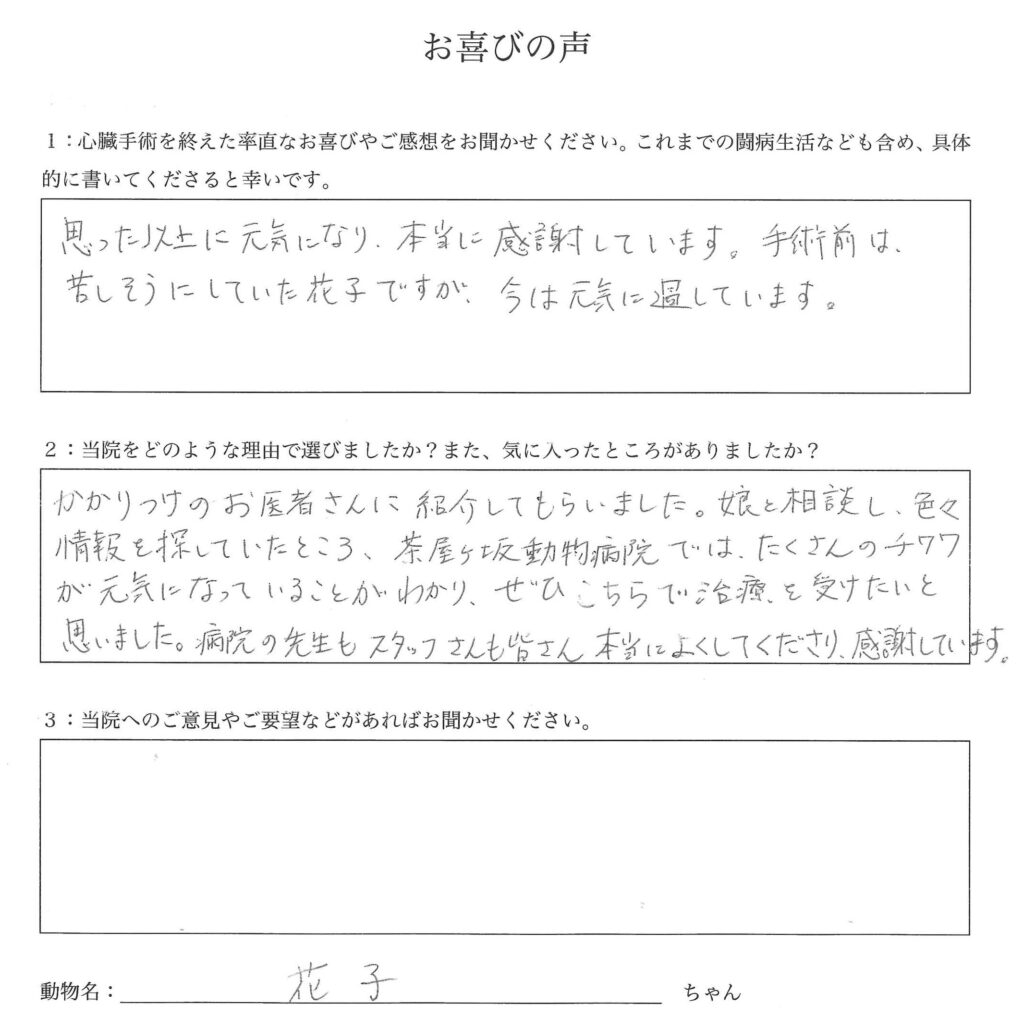 お喜びの声
１：心臓手術を終えた率直なお喜びやご感想をお聞かせください。これまでの闘病生活なども含め、具体
的に書いてくださると幸いです。
思った以上に元気になり、本当に感謝しています。手術前は、
苦しそうにしていた花子ですが、今は元気に過しています。
２：当院をどのような理由で選びましたか？また、気に入ったところがありましたか？
かかりつけのお医者さんに紹介してもらいました。娘と相談し、色々
情報を探していたところ、茶屋ヶ坂動物病院では、たくさんのチワワ
が元気になっていることがわかり、ぜひこちらで治療を受けたいと
思いました。病院の先生もスタッフさんも皆さん本当によくしてくださり、感謝しています。
３：当院へのご意見やご要望などがあればお聞かせください。
動物名：花子 ちゃん